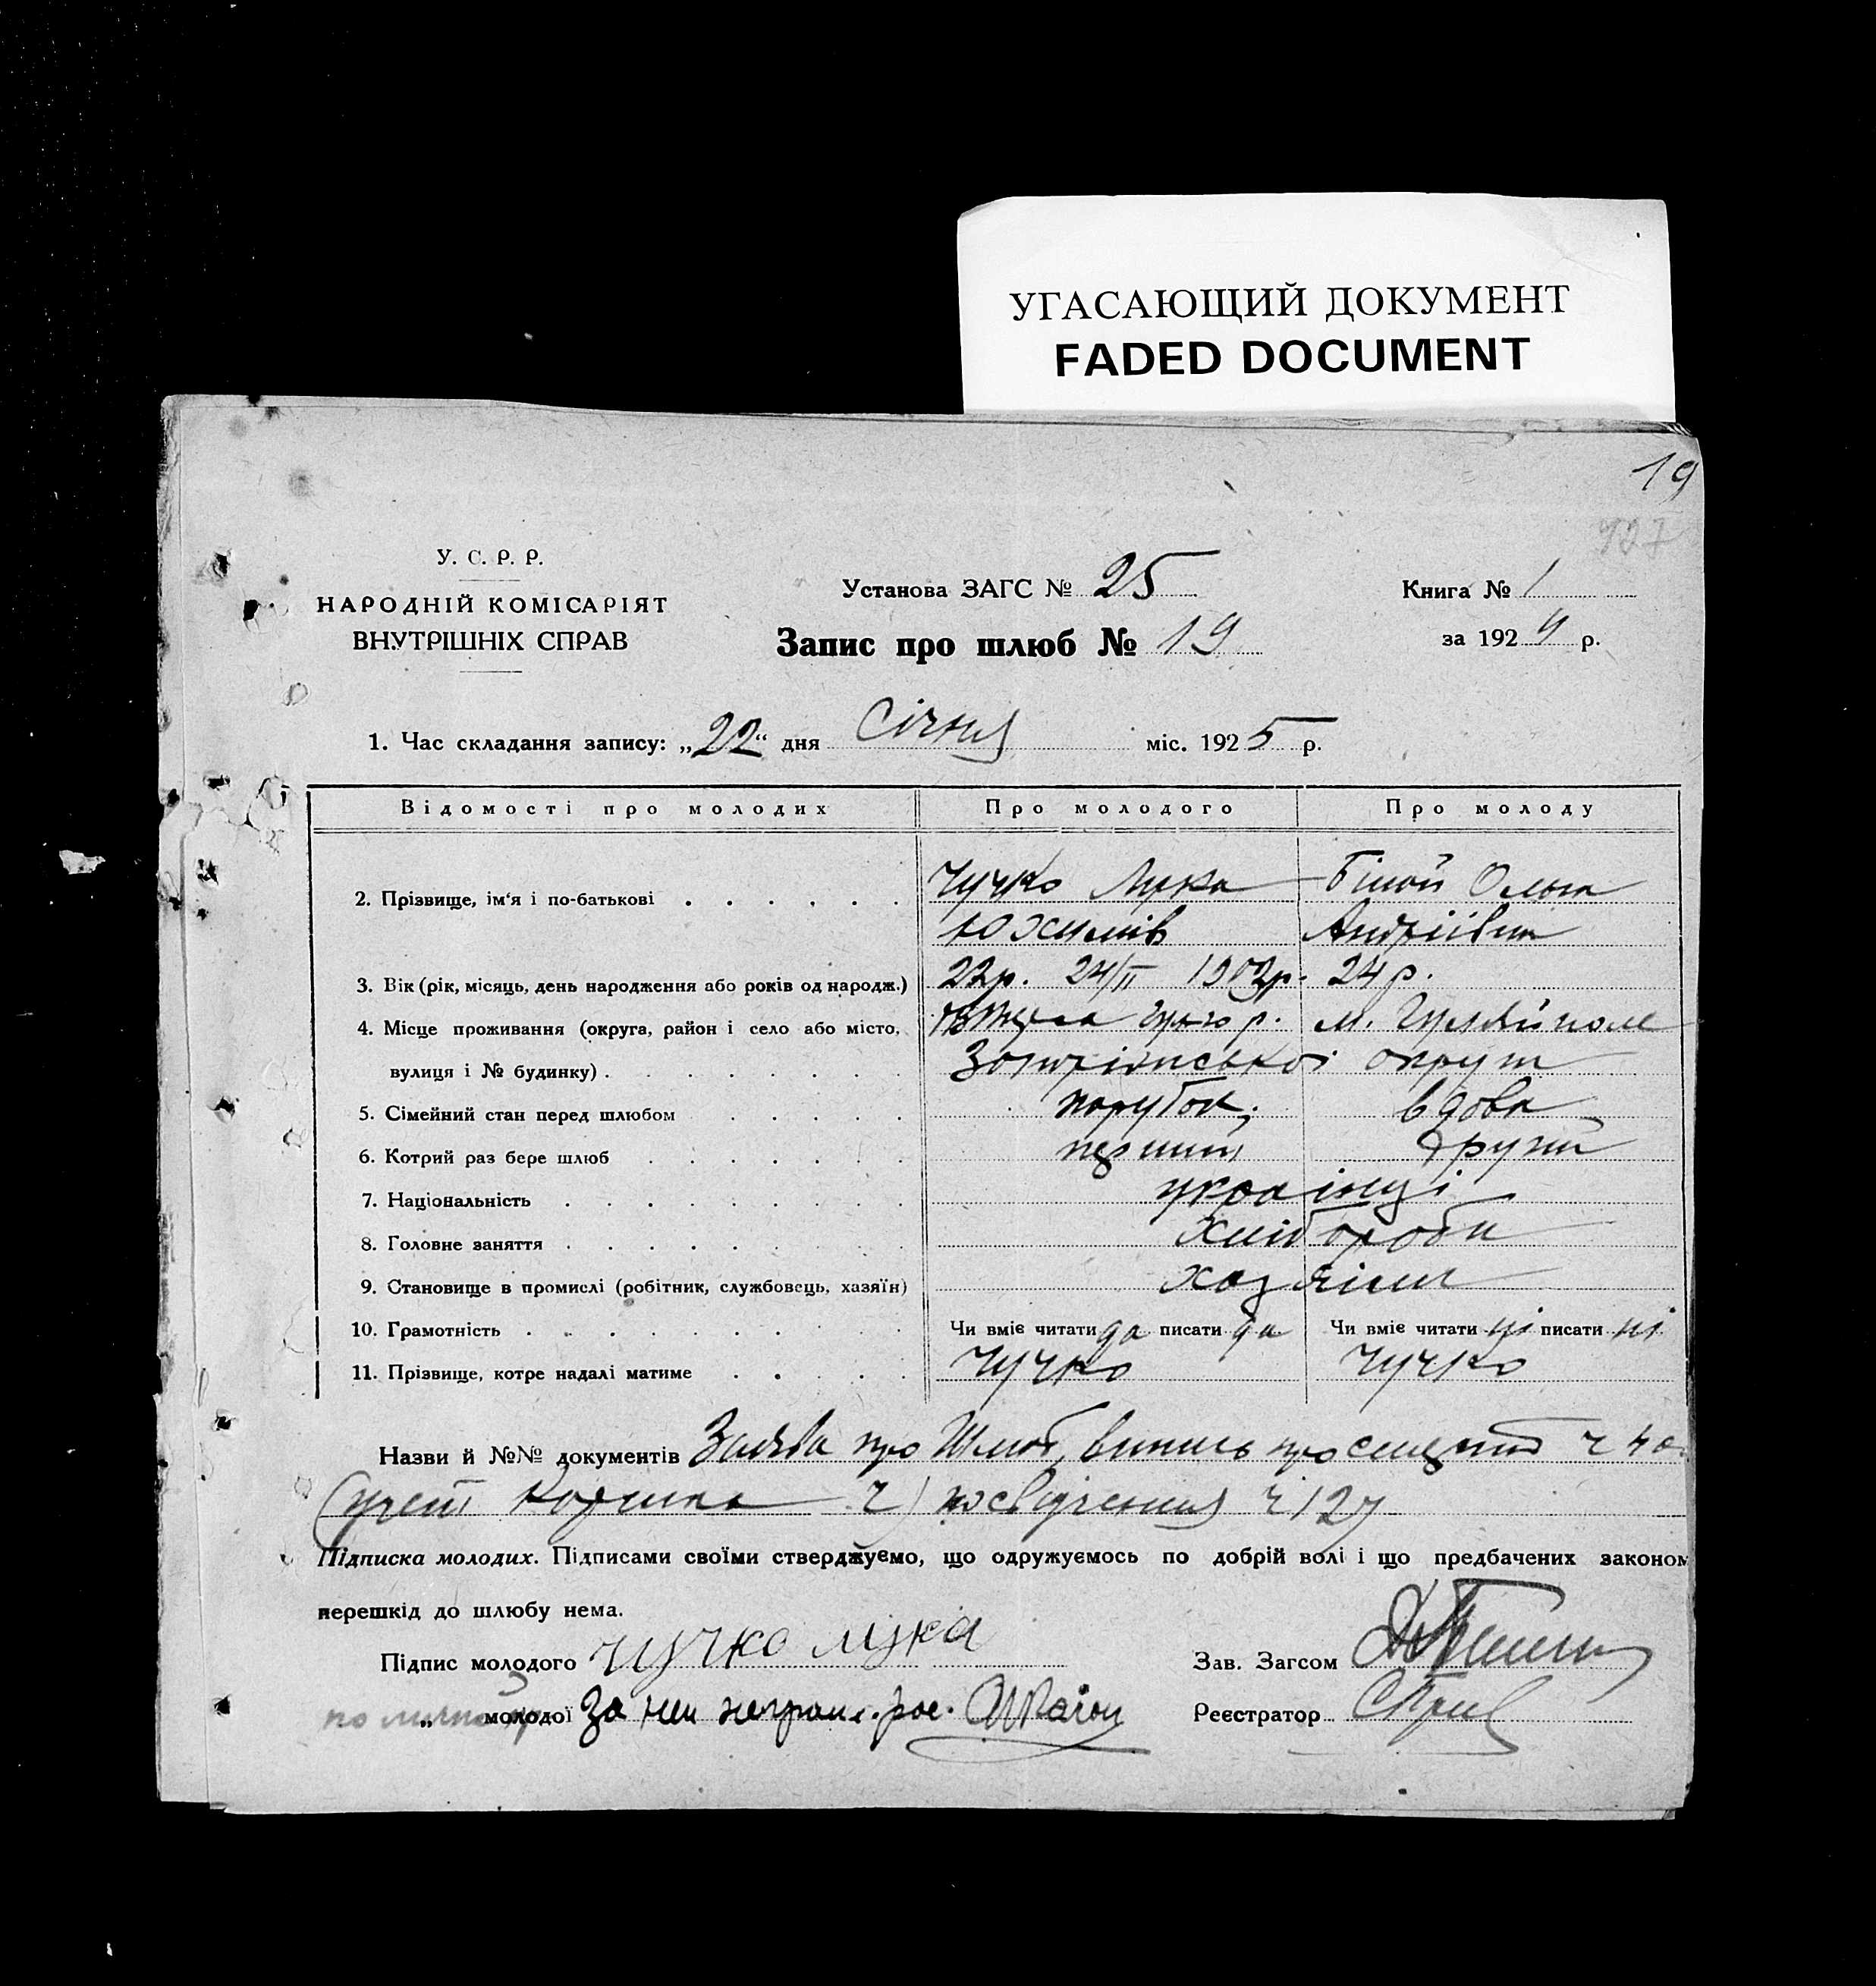 УГАСАЮЩИЙ ДОКУМЕНТ
FADED DOCUMENT
19
У. С. Р. Р.
НАРОДНІЙ КОМІСАРІЯТ
ВНУТРІШНІХ СПРАВ
Установа ЗАГС № 25
Запис про шлюб № 19
Книга № 1
за 1924 р.
1. Час складання запису: „22" дня Січня міс. 1925 р.
Відомості про молодих Про молодого Про молоду
2. Прізвище, ім'я і по-батькові Чучко Лука Білай Ольга
Юхимів Андріївна
3. Вік (рік, місяць, день народження або років од народж.) 22р. 24/II 1902р. 24 р.
4. Місце проживання (округа, район і село або місто, м. Гуляйполе
вулиця і № будинку) Запоріжської округи
5. Сімейний стан перед шлюбом парубок; вдова
6. Котрий раз бере шлюб перший другий
7. Національність українці
8. Головне заняття хлібороби
9. Становище в промислі (робітник, службовець, хазяїн) хазяїни
10. Грамотність Чи вміє читати да писати да Чи вміє читати ні писати ні
11. Прізвище, котре надалі матиме Чучко Чучко
Назви й №№ документів Заява про Шлюб, випись про смерть
посвідчення ч 127
Підписка молодих. Підписами своїми стверджуємо, що одружуємось по добрій волі і що предбачених законом
перешкід до шлюбу нема.
Підпис молодого Чучко лука Зав. Загсом
„ молодої За неи неграм. рос. Реєстратор